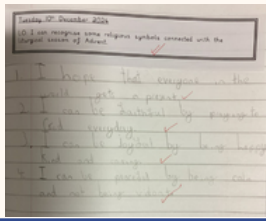 Tuesday 10th December 2024
LO: I can recognise some religious symbols connected with the
liturgical season of Advent.
1. I hope that everyone in the
world gets a present
2. I can be faithful by praying to
God everyday
3. I can be joyful by being happy
and not
4. I can be peaceful by being calm
and not being